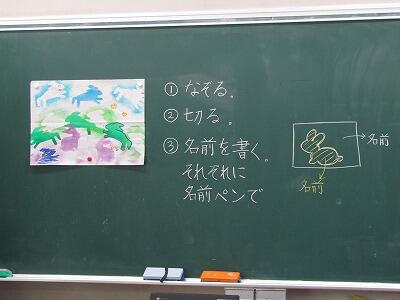 ① なぞる。
② 切る。
③ 名前を書く。
それぞれに
名前ペンで
名前
名前